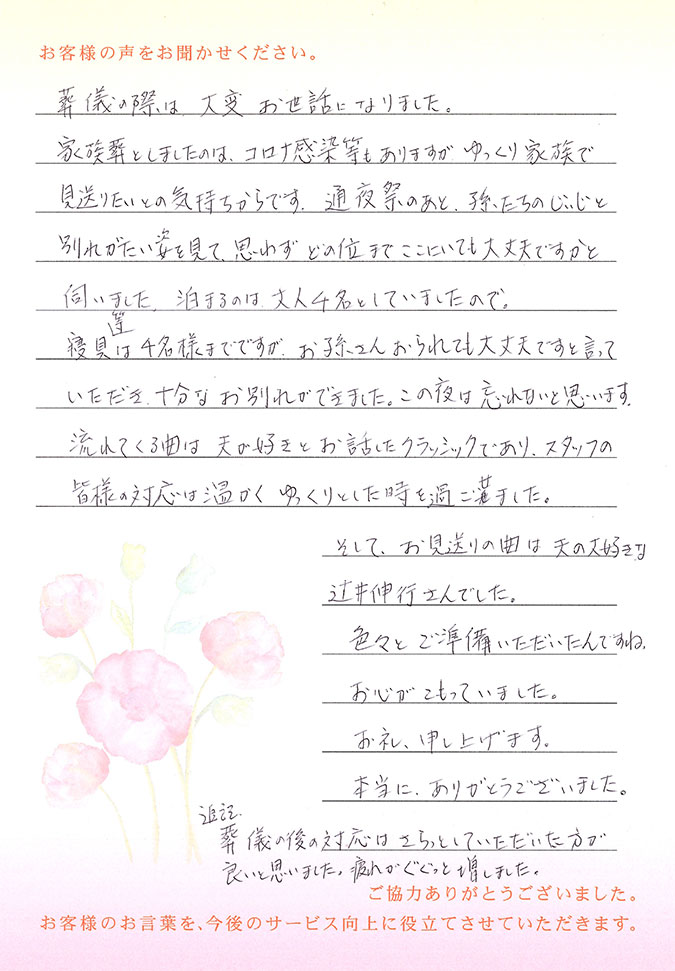 お客様の声をお聞かせください。
葬儀の際は 大変 お世話になりました。
家族葬としましたのは、コロナ感染等もありますが ゆっくり家族で
見送りたいとの気持ちからです。通夜祭のあと、孫たちのじぃじと
別れがたい姿を見て、思わず どの位まで ここにいても大丈夫ですかと
伺いました。泊まるのは 大人4名としていましたので。
寝具等は4名様までですが、お孫さんおられても大丈夫ですと言って
いただき、十分な お別れができました。この夜は忘れないと思います。
流れてくる曲は 夫が好きとお話したクラッシックであり、スタッフの
皆様の対応は温かく ゆっくりとした時を過ごせました。
そして、お見送りの曲は 夫の大好きな
辻井伸行さんでした。
色々と ご準備いただいたんですね。
お心がこもっていました。
お礼、申し上げます。
本当に、ありがとうございました。
追記
葬儀の後の対応は さらっとしていただいた方が
良いと思いました。疲れがぐぐっと増しました。
ご協力ありがとうございました。
お客様のお言葉を、今後のサービス向上に役立てさせていただきます。